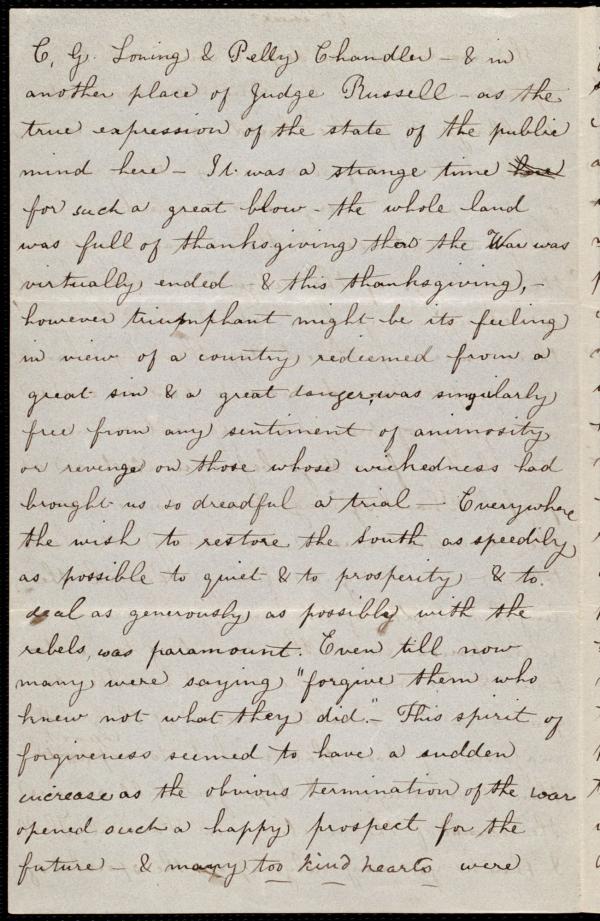 C. G. Loring & Pelly Chandler - & in
another place of Judge Russell - as the
true expression of the state of the public
mind here - It was a strange time
for such a great blow - the whole land
was full of thanksgiving that the War was
virtually ended - & this thanksgiving, -
however triumphant might be its feeling
in view of a country redeemed from a
great sin & a great danger, was singularly
free from any sentiment of animosity
or revenge on those whose wickedness had
brought us so dreadful a trial - Everywhere
the wish to restore the South as speedily
as possible to quiet & to prosperity & to
deal as generously as possible with the
rebels, was paramount. Even till now
many were saying "forgive them who
knew not what they did." - This spirit of
forgiveness seemed to have a sudden
increase as the obvious termination of the war
opened such a happy prospect for the
future - & many too kind hearts were